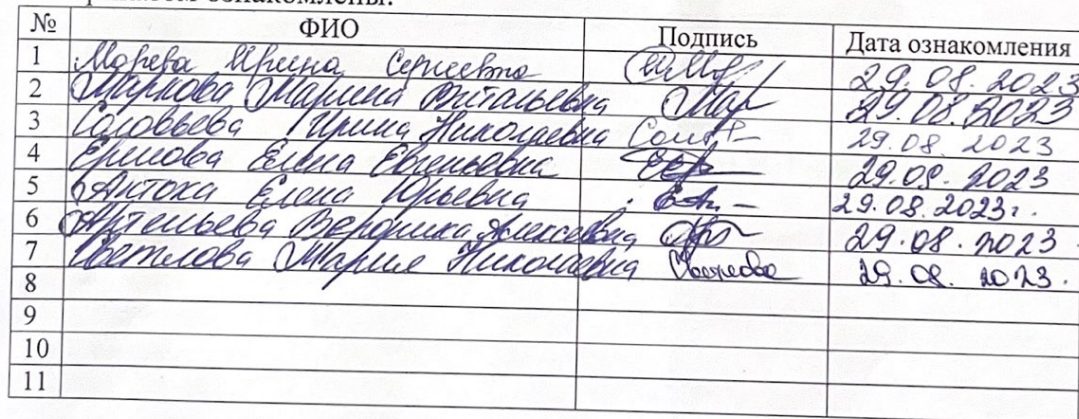 ознакомлены.
№ ФИО Подпись Дата ознакомления
1 Морева Ирина Сергеевна 29.08.2023
2 Маркова Марина Витальевна Мар 29.08.2023
3 Соловьева Ирина Николаевна 29.08.2023
4 Ермова Елена Евгеньевна 29.08.2023
5 Антоха Елена Юрьевна 29.08.2023г.
6 Артемьева Вероника Алексеевна 29.08.2023
7 Светлова Мария Николаевна 29.08.2023.
8
9
10
11